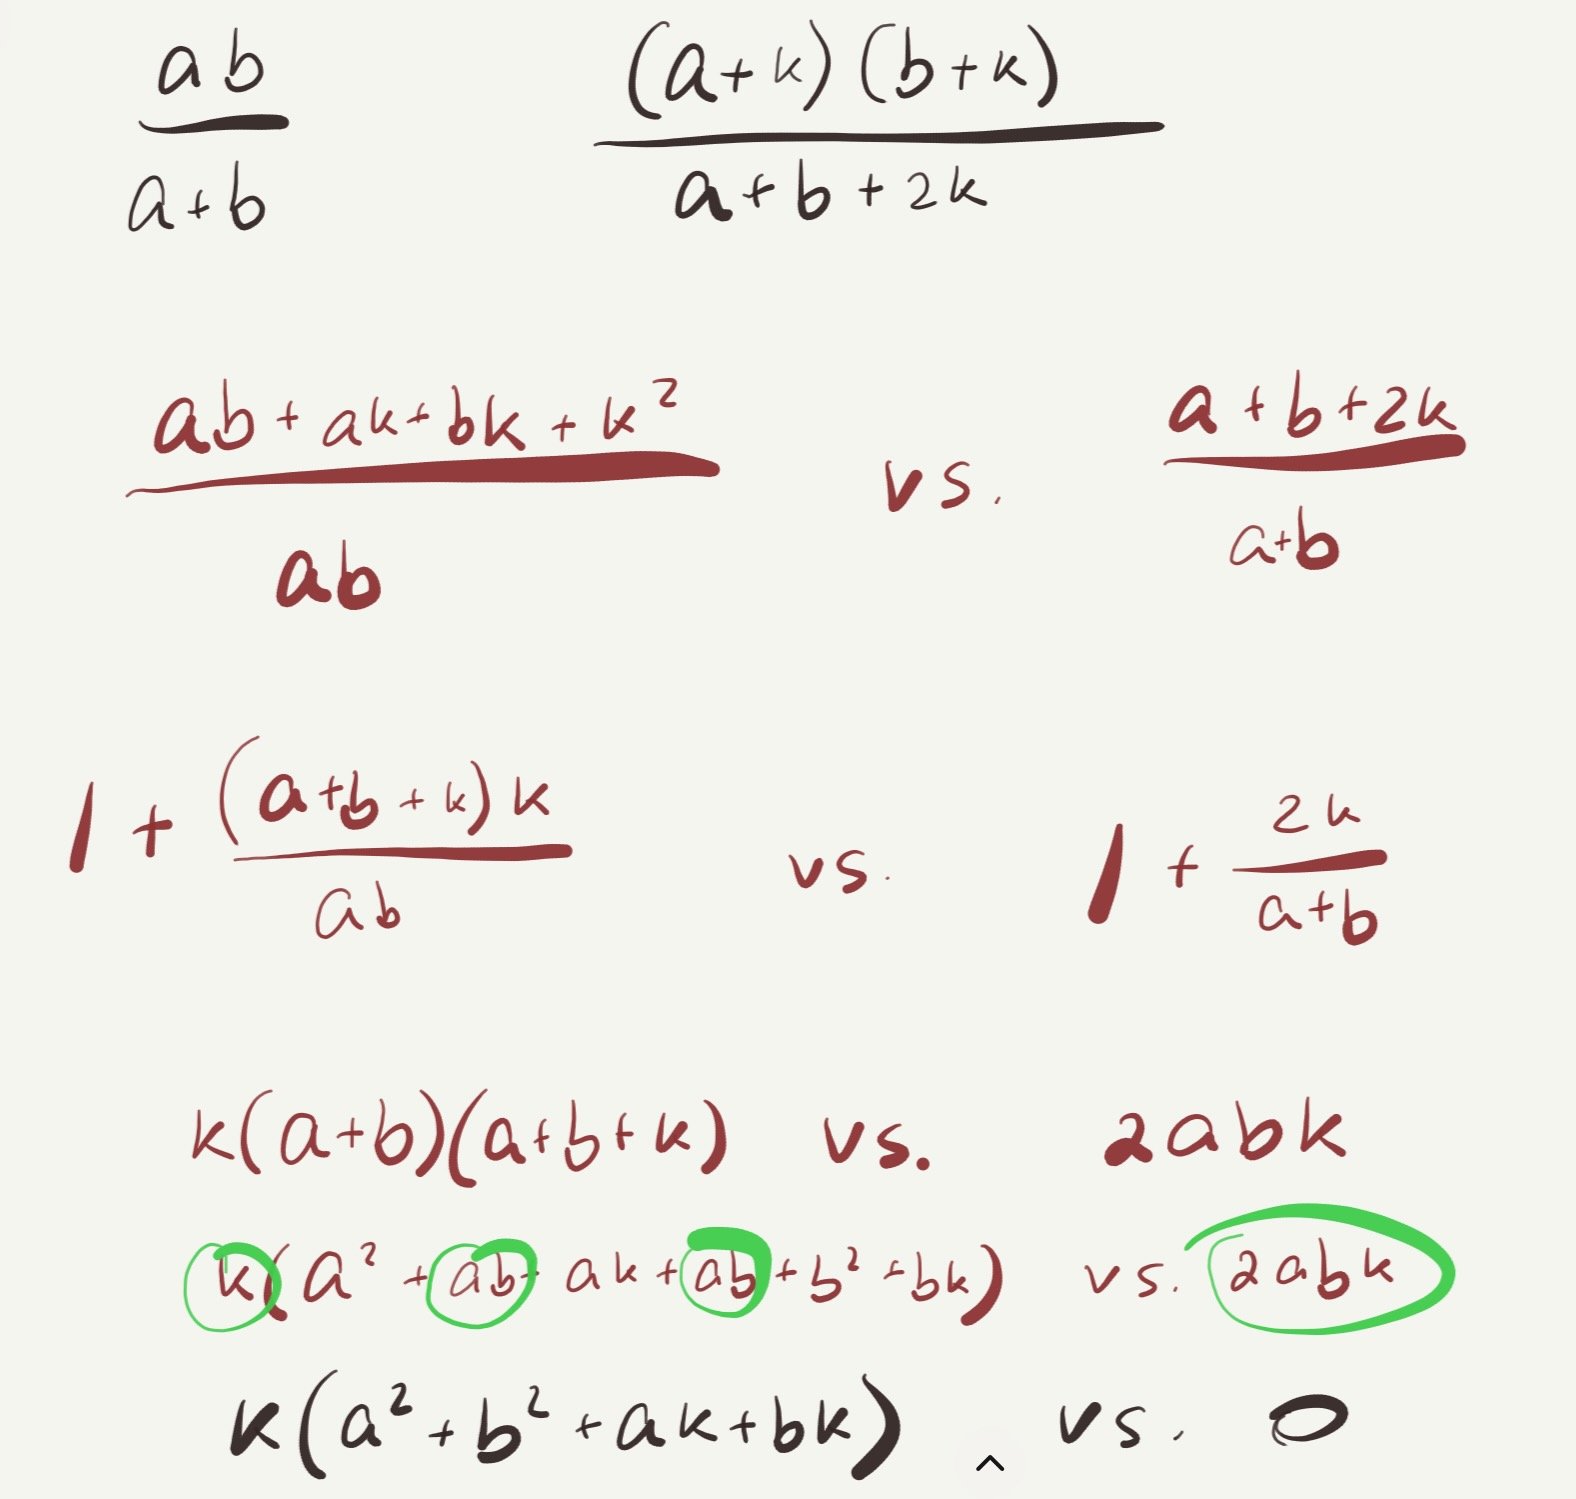 ab (a+k)(b+k)
a+b a+b+2k
ab+ak+bk+k² vs. a+b+2k
ab a+b
1 + (a+b+k)k vs. 1 + 2k
ab a+b
k(a+b)(a+b+k) vs. 2abk
k(a²+ab+ak+ab+b²+bk) vs. 2abk
k(a²+b²+ak+bk) vs. 0